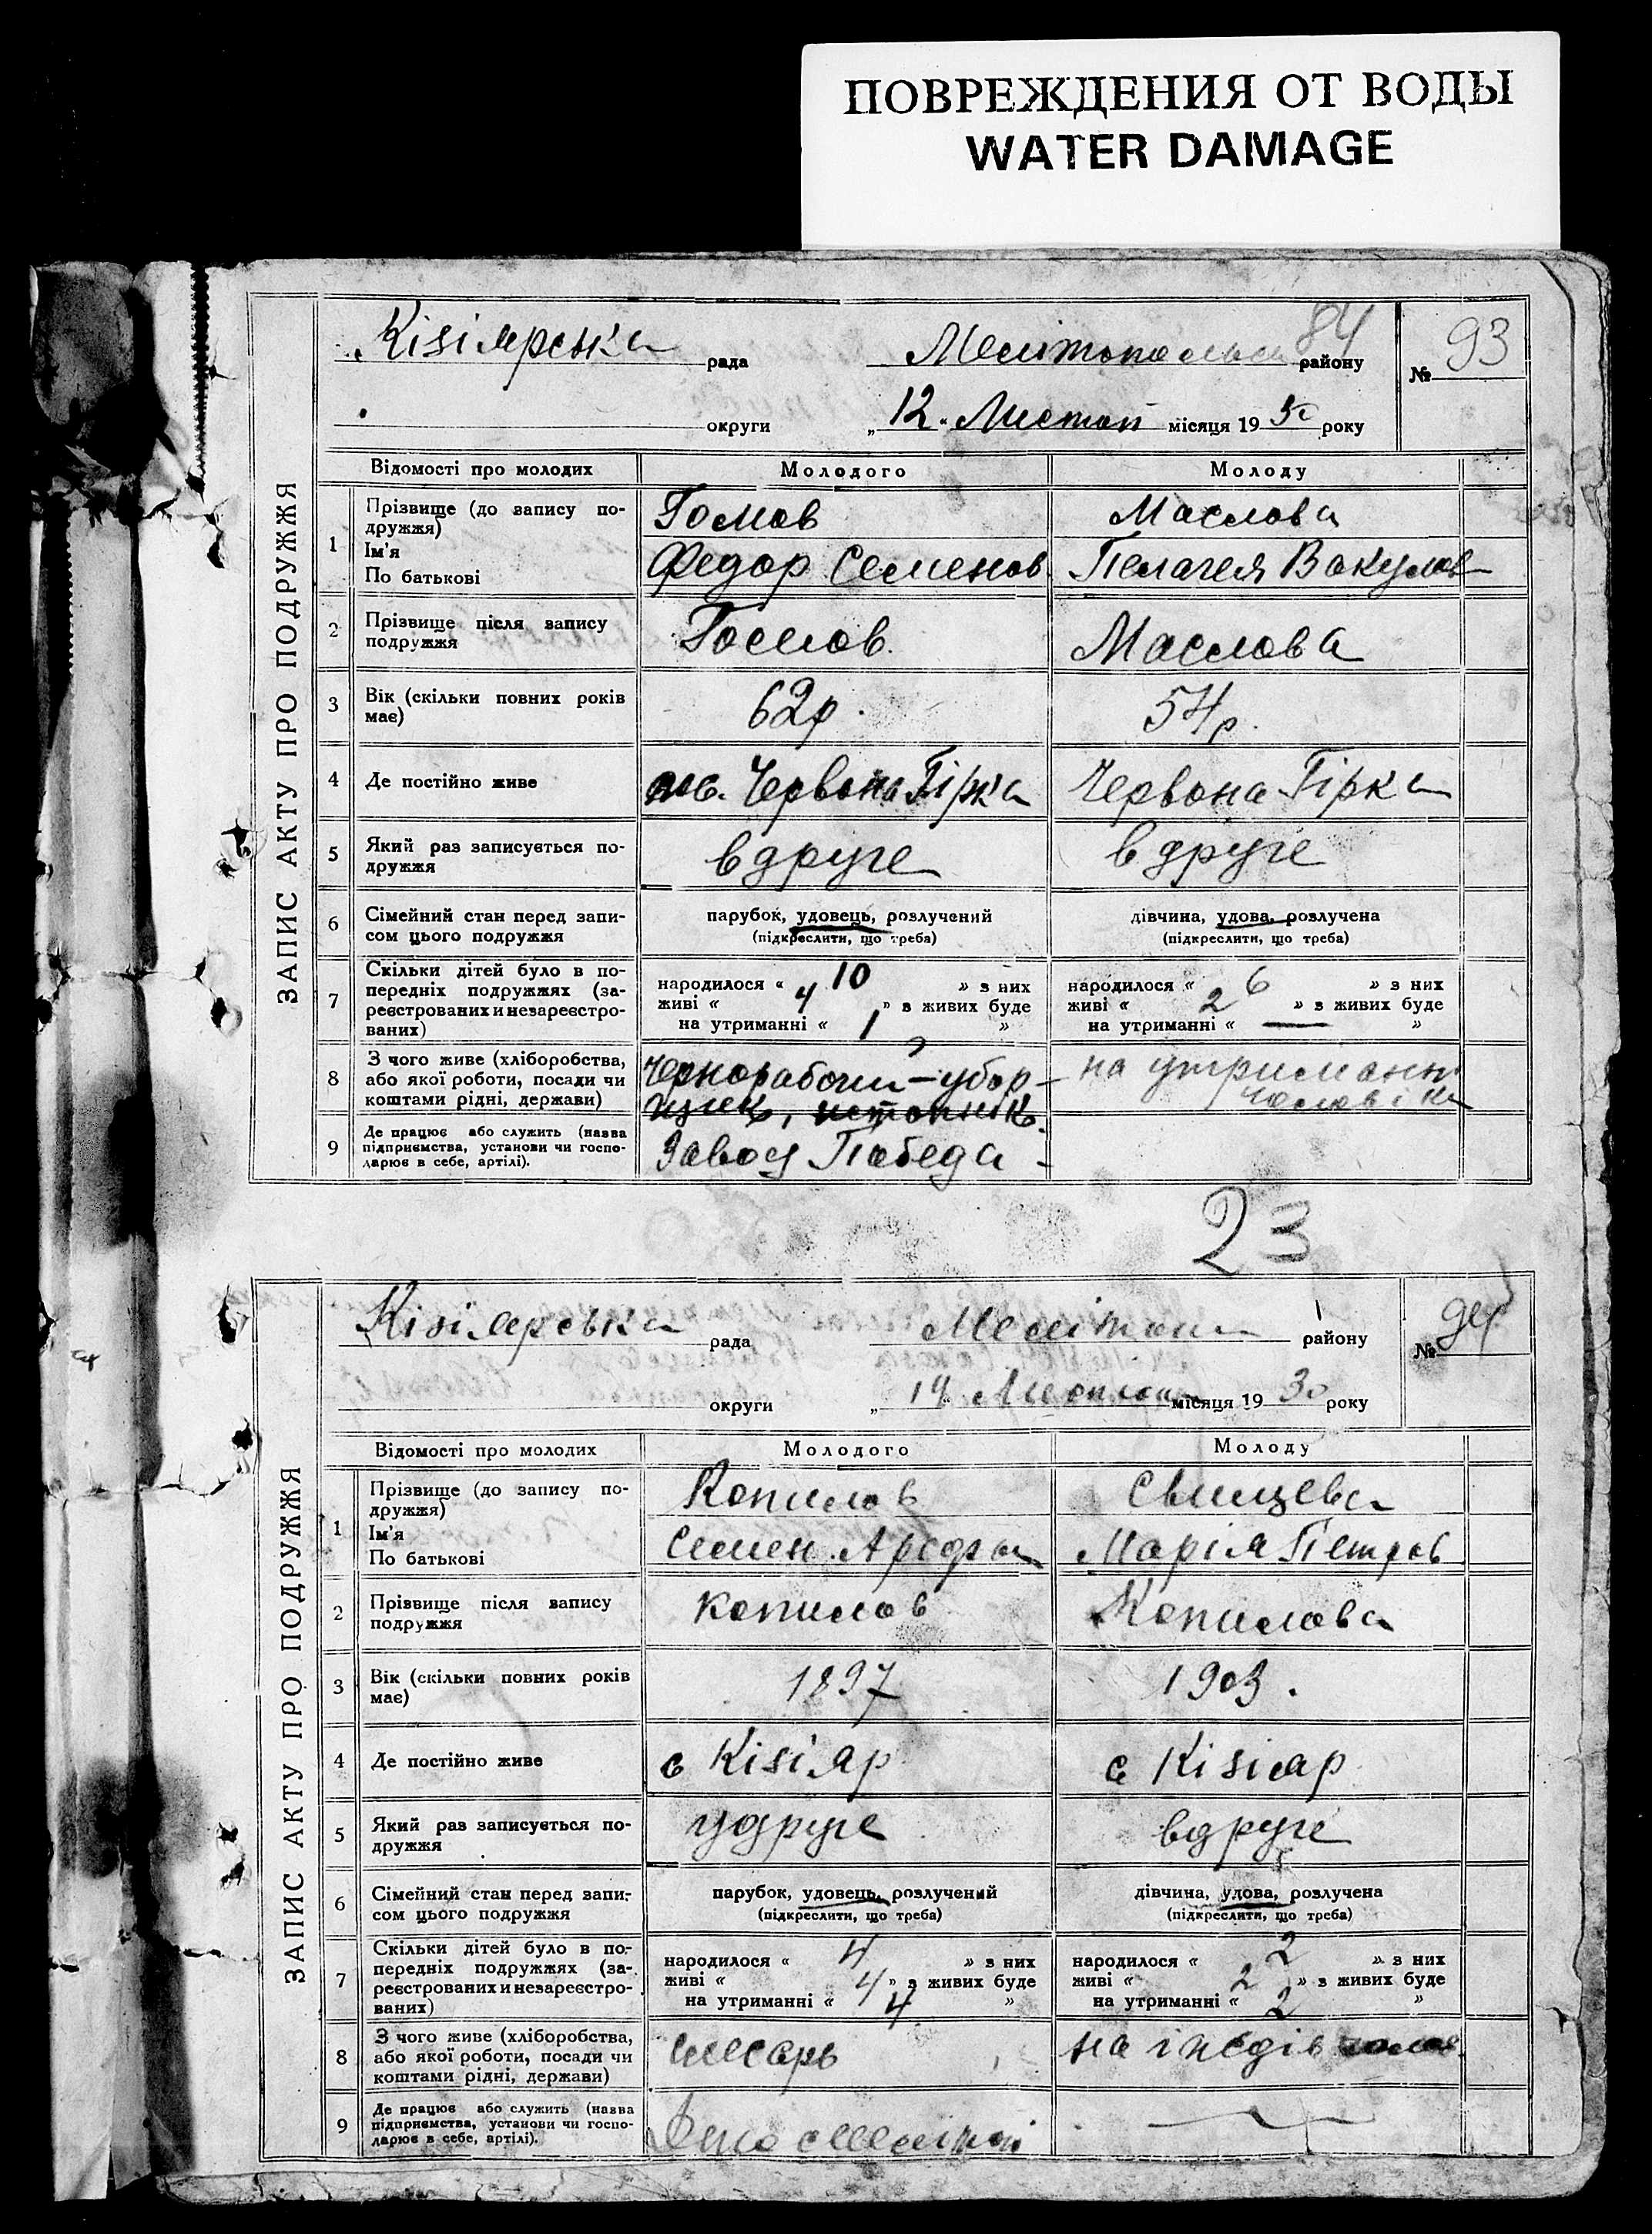 ПОВРЕЖДЕНИЯ ОТ ВОДЫ
WATER DAMAGE
ЗАПИС АКТУ ПРО ПОДРУЖЖЯ
84
Кізіярська рада Мелітопольськ району № 93
округи „12" Листоп місяця 1930 року
Відомості про молодих Молодого Молоду
1 Прізвище (до запису по-
дружжя)
Ім'я
По батькові
Гомов Маслова
Федор Семенов Пелагея Вакулов
2 Прізвище після запису
подружжя
Гомов. Маслова
3 Вік (скільки повних років
має)
62р. 54р.
4 Де постійно живе Червона Гірка Червона Гірка
5 Який раз записується по-
дружжя
вдруге вдруге
6 Сімейний стан перед запи-
сом цього подружжя
парубок, удовець, розлучений дівчина, удова, розлучена
(підкреслити, що треба) (підкреслити, що треба)
7 Скільки дітей було в по-
передніх подружжях (за-
реєстрованих и незареєстро-
ваних)
народилося « 10 » з них народилося « 6 » з них
живі « 4 » з живих буде живі « 2 » з живих буде
на утриманні « 1 » на утриманні « — »
8 З чого живе (хліборобства,
або якої роботи, посади чи
коштами рідні, держави)
Чернорабочи – убор- на утриманні
щик, истопник. чоловіка
9 Де працює або служить (назва
підприємства, установи чи госпо-
дарює в себе, артілі).
Завод Победа -
23
ЗАПИС АКТУ ПРО ПОДРУЖЖЯ
Кізіярська рада Мелітоп району № 94
округи „ місяця 1930 року
Відомості про молодих Молодого Молоду
1 Прізвище (до запису по-
дружжя)
Ім'я
По батькові
Копилов Свищева
Семен Марія Петров
2 Прізвище після запису
подружжя
Копилов Копилова
3 Вік (скільки повних років
має)
1897 1903.
4 Де постійно живе с Кізіяр с Кізіяр
5 Який раз записується по-
дружжя
удруге вдруге
6 Сімейний стан перед запи-
сом цього подружжя
парубок, удовець, розлучений дівчина, удова, розлучена
(підкреслити, що треба) (підкреслити, що треба)
7 Скільки дітей було в по-
передніх подружжях (за-
реєстрованих и незареєстро-
ваних)
народилося « 4 » з них народилося « 2 » з них
живі « 4 » з живих буде живі « 2 » з живих буде
на утриманні « 4 » на утриманні « 2 »
8 З чого живе (хліборобства,
або якої роботи, посади чи
коштами рідні, держави)
слесарь на іжедів
9 Де працює або служить (назва
підприємства, установи чи госпо-
дарює в себе, артілі).
Депо